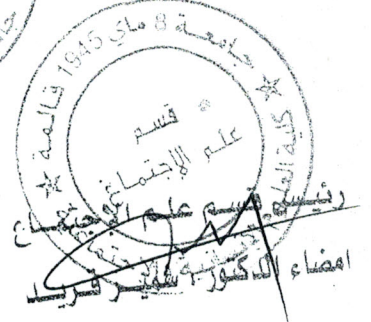 جامعة 8 ماي 1945 قالمة
كلية
قسم
علم الإجتماع
رئيس قسم علم الإجتماع
امضاء الدكتور: سمير قريد